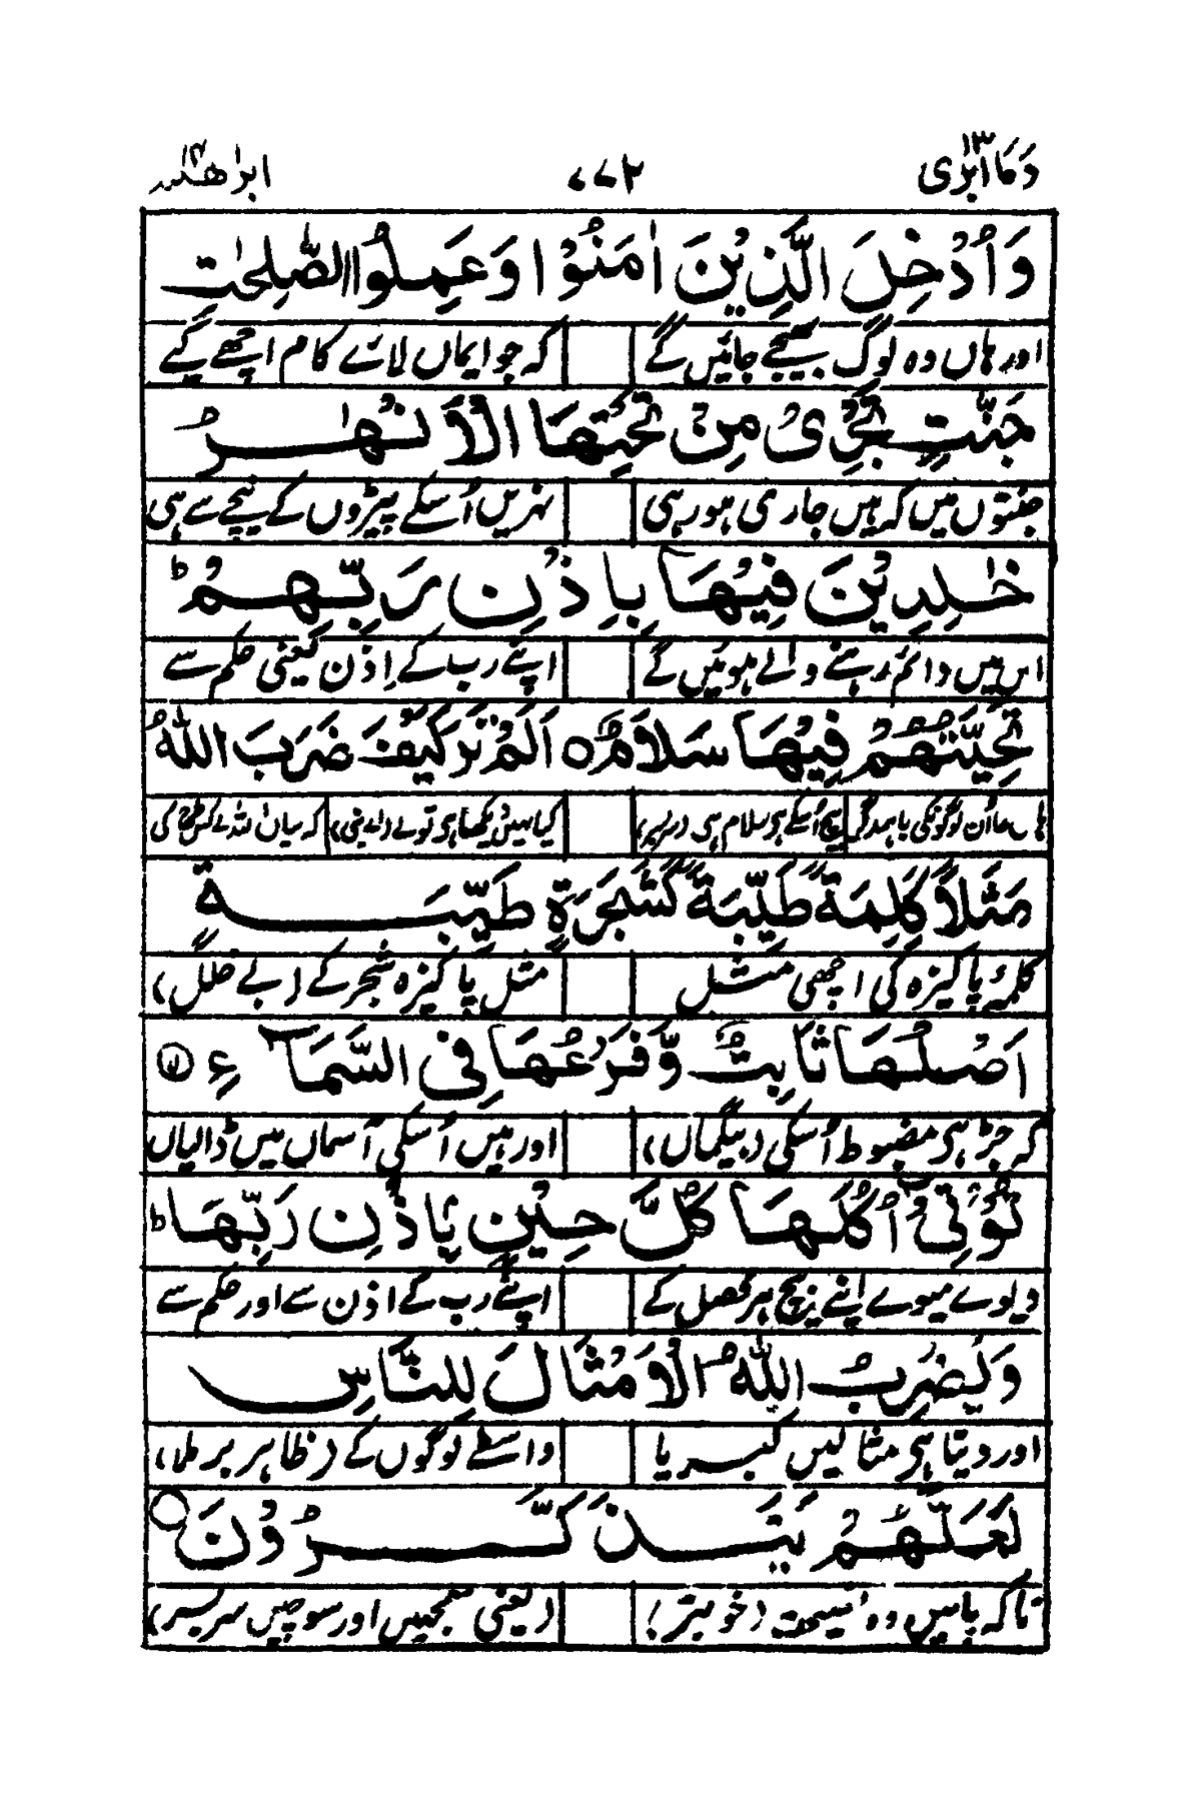 وَمَا اُبَرِّئُ ۱۳ ۷۷۲ ابرٰھیم ۱۴
وَاُدْخِلَ الَّذِیْنَ اٰمَنُوْا وَعَمِلُوا الصّٰلِحٰتِ
اور ھاں وہ لوگ بھیجے جائیں گے کہ جو ایماں لائے کام اچھے کیے
جَنّٰتٍ تَجْرِیْ مِنْ تَحْتِهَا الْاَنْهٰرُ
جنتوں میں کہ ہیں جاری ہو رہی نہریں اُسکے پیڑوں کے نیچے سے ہی
خٰلِدِیْنَ فِیْهَا بِاِذْنِ رَبِّهِمْ ؕ
اس میں دائم رہنے والے ہوئیں گے اپنے رب کے اِذن یعنی حکم سے
تَحِیَّتُهُمْ فِیْهَا سَلَامٌ ○ اَلَمْ تَرَ كَیْفَ ضَرَبَ اللّٰهُ
مَثَلًا كَلِمَةً طَیِّبَةً كَشَجَرَةٍ طَیِّبَةٍ
کلمۂ پاکیزہ کی اچھی مثل مثل پاکیزہ شجر کے (بے خلل)
اَصْلُهَا ثَابِتٌ وَّفَرْعُهَا فِی السَّمَآءِ
کہ جڑ ہی مضبوط اُسکی (بیگماں) اور ہیں اُسکی آسماں میں ڈالیاں
تُؤْتِیْۤ اُكُلَهَا كُلَّ حِیْنٍۭ بِاِذْنِ رَبِّهَا ؕ
دیوے میوے اپنے بیچ ہر فصل کے اپنے رب کے اذن سے اور حکم سے
وَیَضْرِبُ اللّٰهُ الْاَمْثَالَ لِلنَّاسِ
اور دیتا ہی مثالیں کبریا واسطے لوگوں کے (ظاہر برملا)
لَعَلَّهُمْ یَتَذَكَّرُوْنَ ○
تاکہ پائیں وہ نصیحت (خوبتر) (یعنی سمجھیں اور سوچیں سربسر)